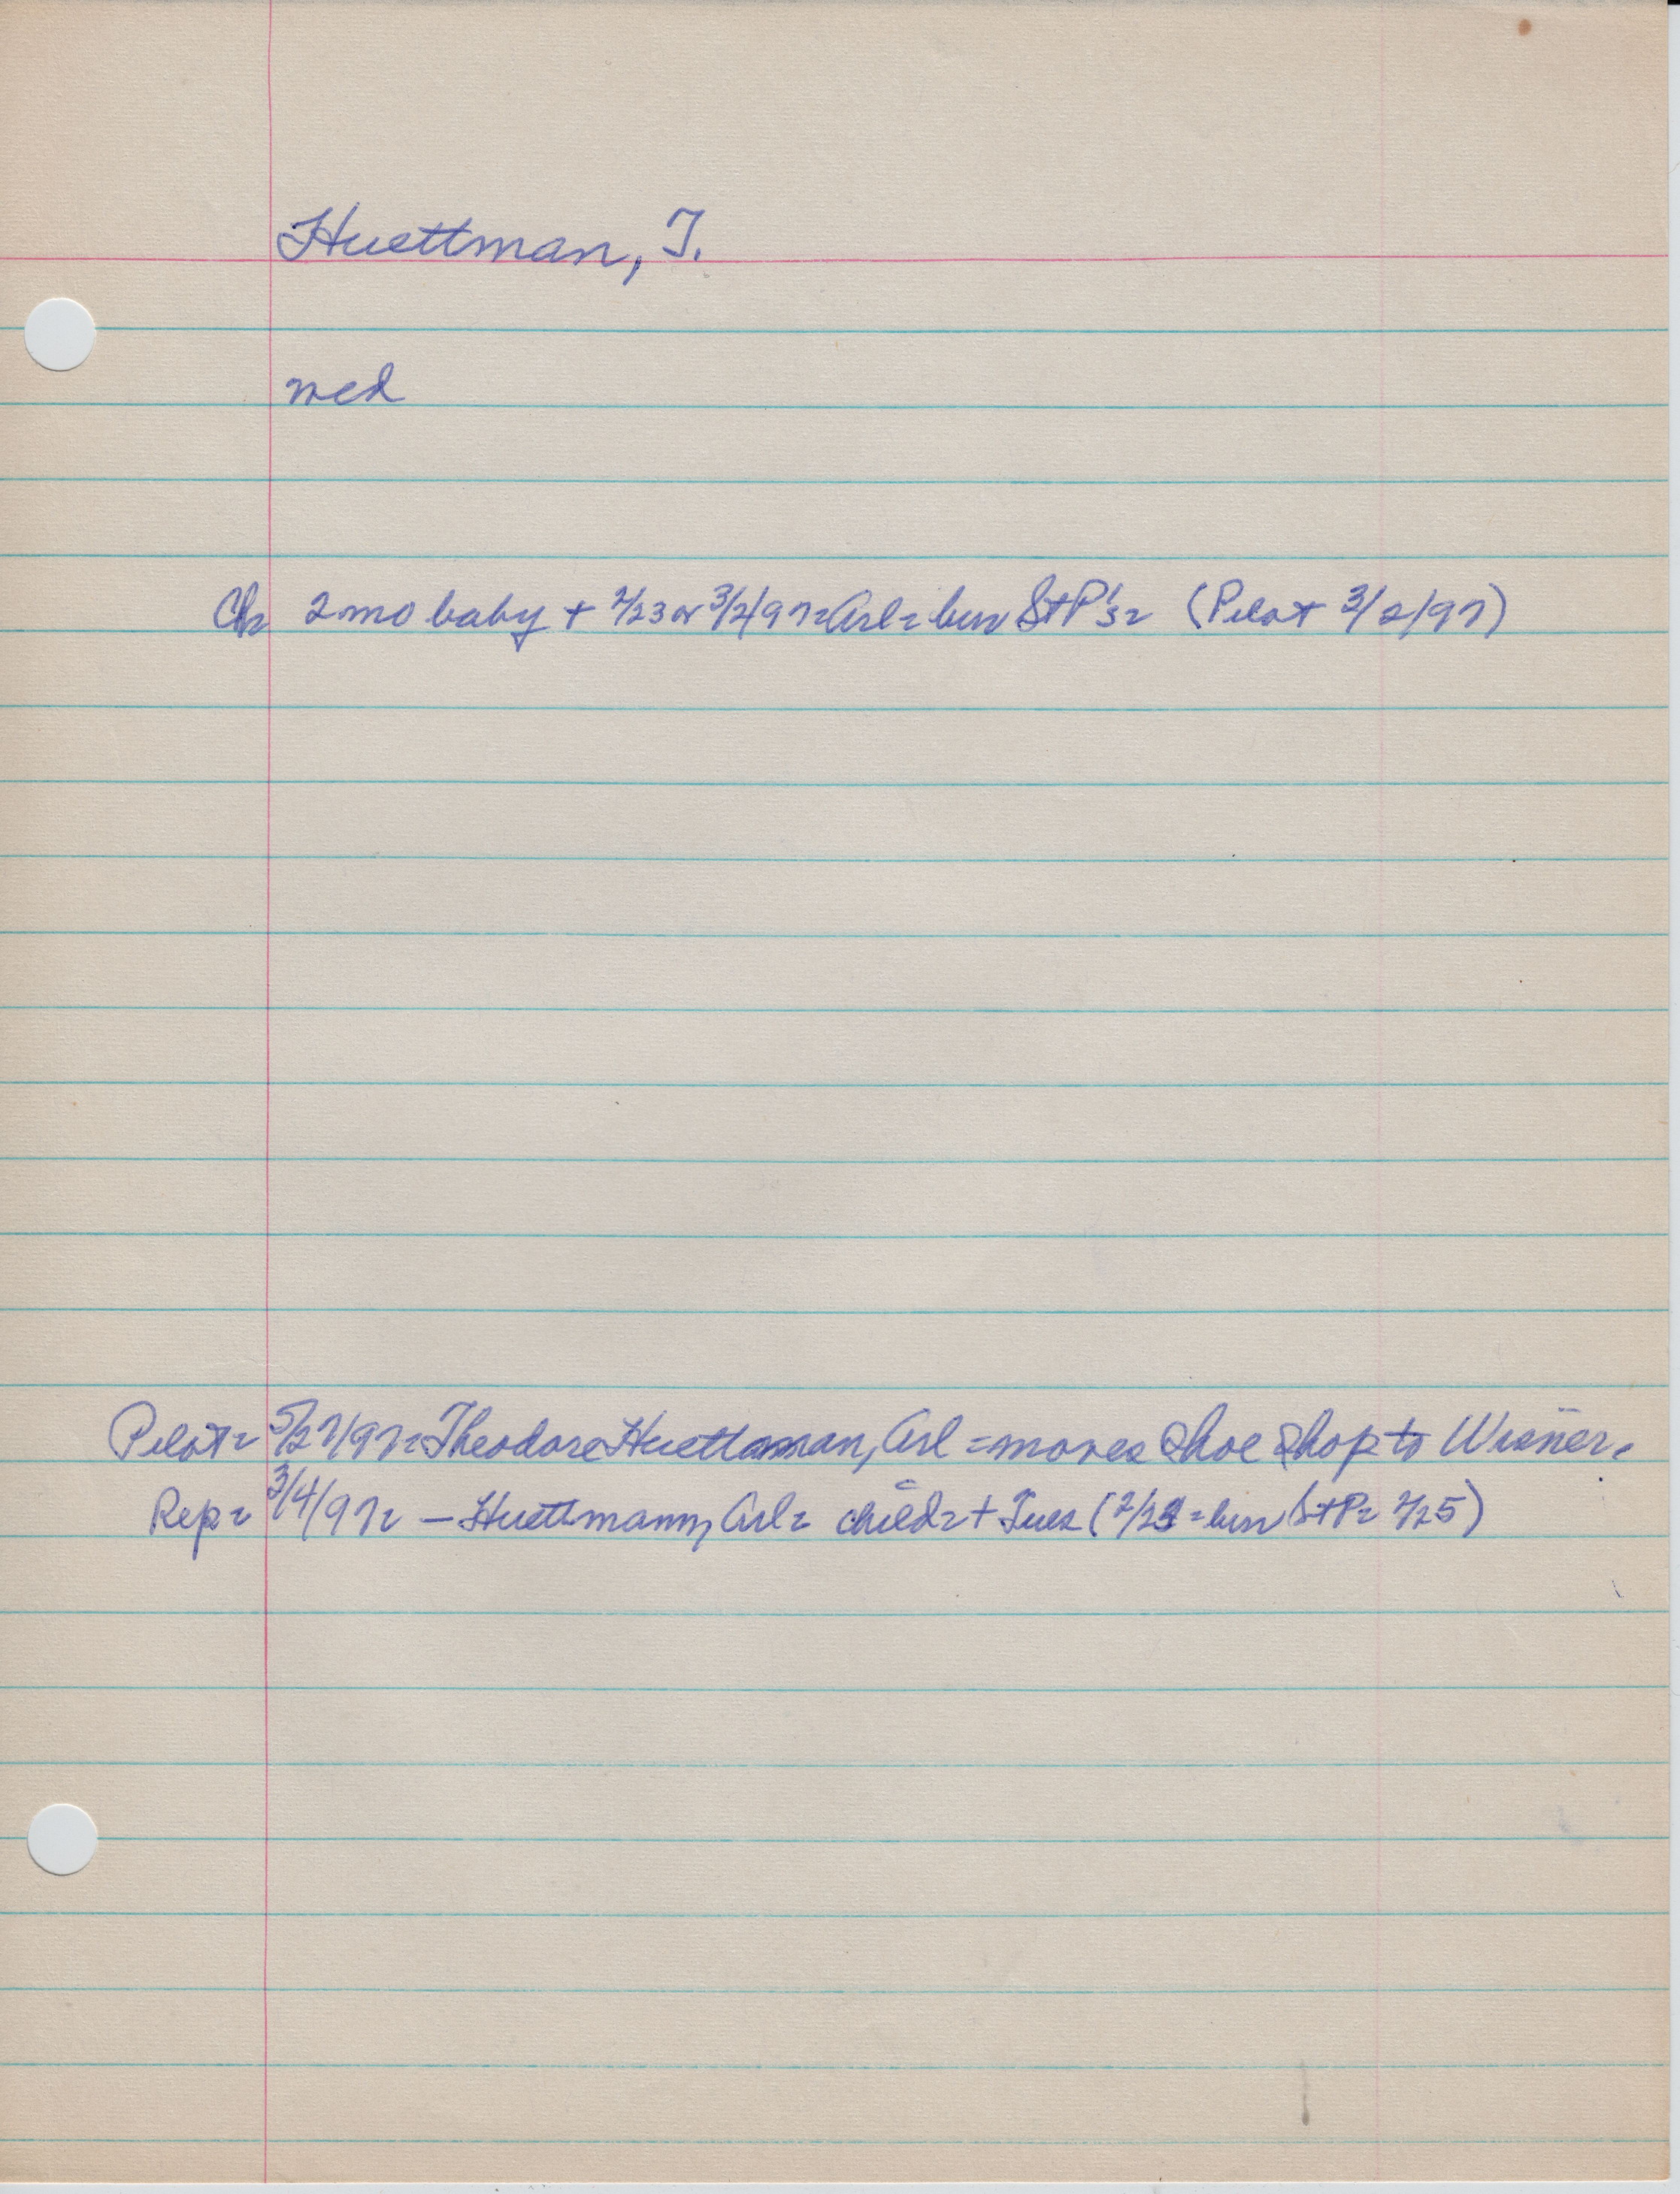 Huettman, T.
wed
Ch= 2 mo baby + 2/23 or 3/2/97= Arl= bur St P's= (Pilot 3/2/97)
Pilot= 5/27/97= Theodore Huettman, Arl = moves shoe shop to Wisner.
Rep= 3/4/97= — Huettmann, Arl= child= + Tues (2/23 = bur St P= 2/25)